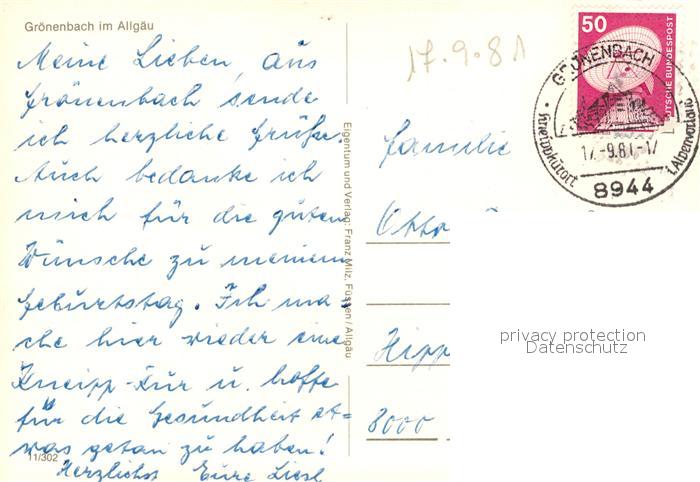 Grönenbach im Allgäu
Meine Lieben, aus
Grönenbach sende
ich herzliche Grüße.
Auch bedanke ich
mich für die guten
Wünsche zu meinem
Geburtstag. Ich ma-
che hier wieder eine
Kneipp-Kur u. hoffe
für die Gesundheit et=
was getan zu haben!
11/302
Herzlichst Eure Liesl
Eigentum und Verlag: Franz Milz, Füssen/Allgäu
17.9.81
50
DEUTSCHE BUNDESPOST
GRÖNENBACH
17.-9.81.-17
Kneippkurort
i. Alpenvorland
8944
Familie
Otto
Hipp
8000
privacy protection
Datenschutz